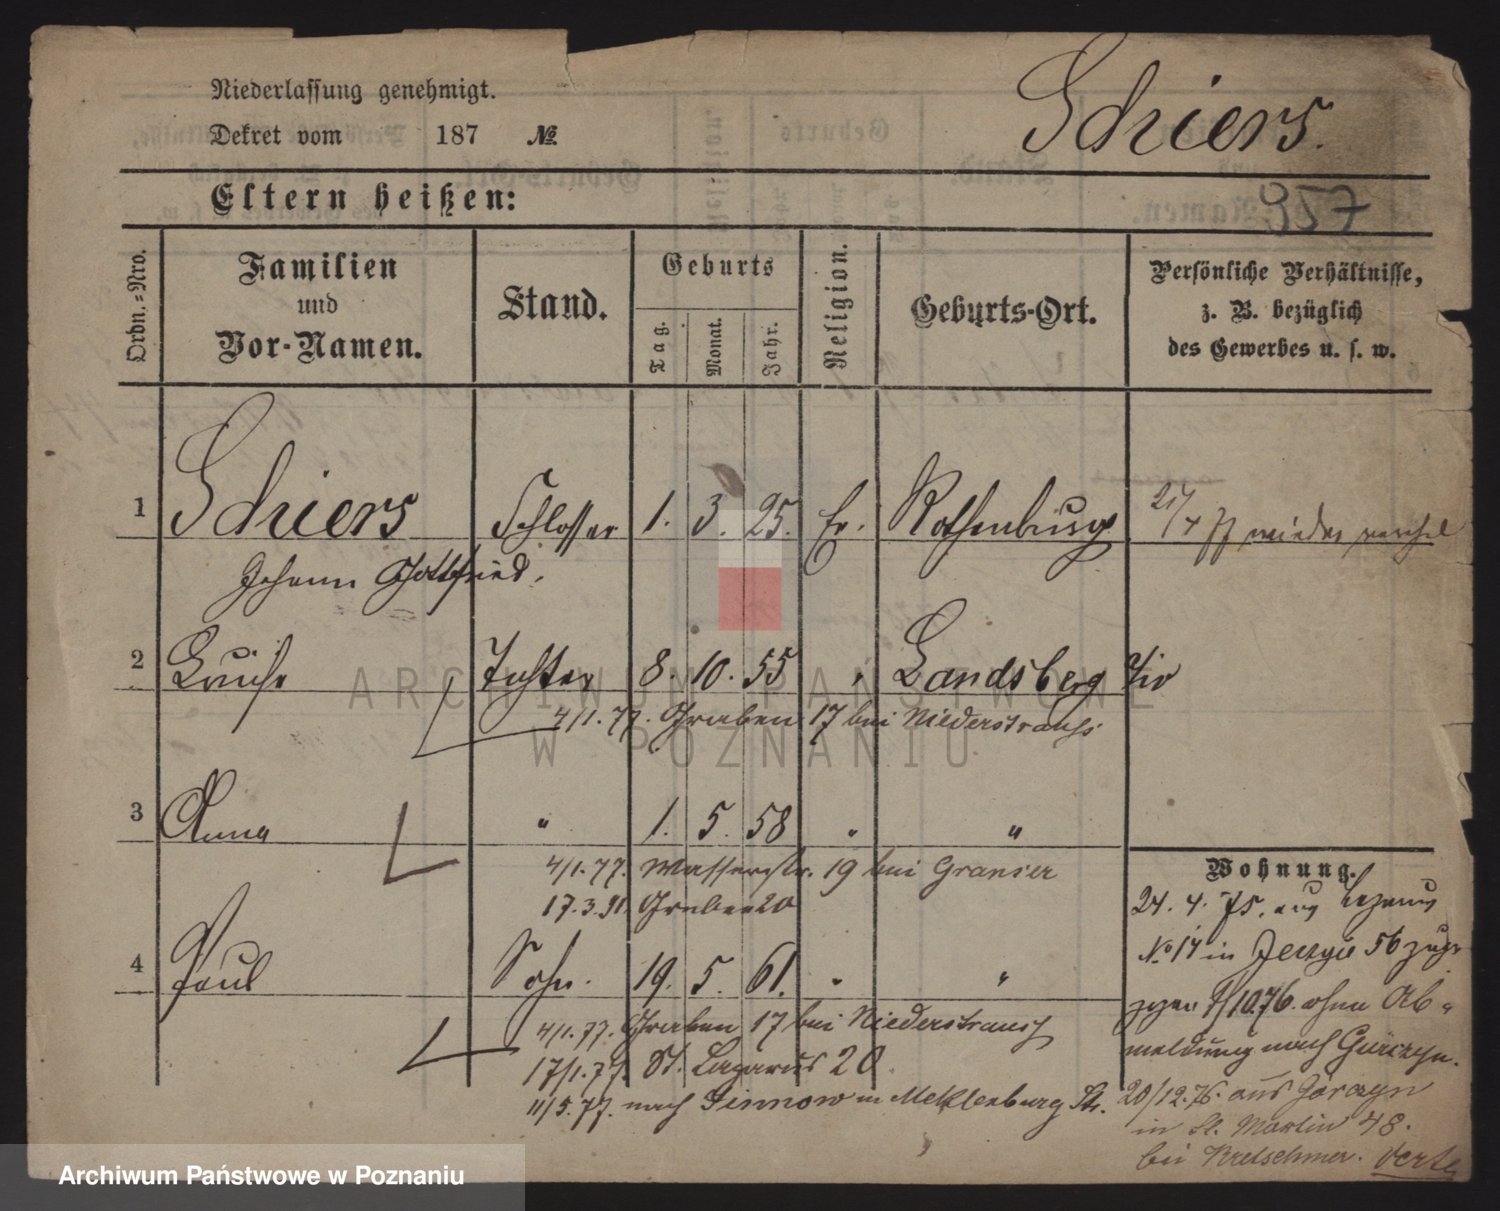 Niederlassung genehmigt.
Dekret vom 187 №
Schiers.
Eltern heißen:
957
Ordn.=Nro.
Familien
und
Vor-Namen.
Stand.
Geburts
Tag.
Monat.
Jahr.
Religion.
Geburts-Ort.
Persönliche Verhältnisse,
z. B. bezüglich
des Gewerbes u. s. w.
1 Schiers Schlosser 1. 3. 25. Ev. Rothenburg wieder
Johann Gottfried.
2 Louise Tochter 8. 10. 55 " Landsberg
4/1.77. Graben 17 bei Niederstrauss
3 Anna " 1. 5. 58 " "
4/1.77. Wasserstr. 19 bei Granser
17.3.91 Graben 20
4 Paul Sohn. 19. 5. 61. " "
4/1.77. Graben 17 bei Niederstrauss
17/1.77. St. Lazarus 20
11/5.77. nach in Meklenburg
Wohnung.
24. 4. 75. aus
No 14 in Jerzyce 56
1/10.76. ohne Ab-
meldung nach Gurczyn.
20/12.76. aus Gorczyn
in St. Martin 48.
bei Kretschmer. Verte
ARCHIWUM PAŃSTWOWE
W POZNANIU
Archiwum Państwowe w Poznaniu